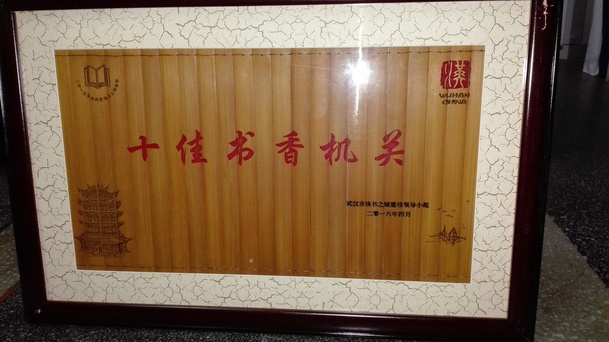 汉
WUHAN
CHINA
十佳书香机关
武汉市读书之城建设领导小组
二零一六年四月